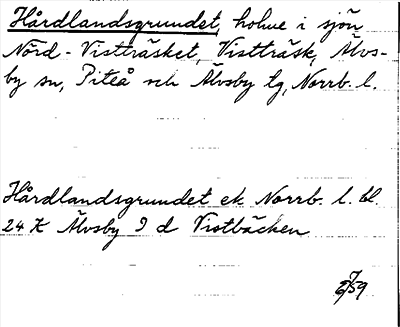 Hårdlandsgrundet, holme i sjön
Nörd-Vistträsket, Vistträsk, Älvs-
by sn, Piteå och Älvsby tg, Norrb. l.
Hårdlandsgrundet ek Norrb. l. bl.
24 K Älvsby 9 d Vistbäcken
59